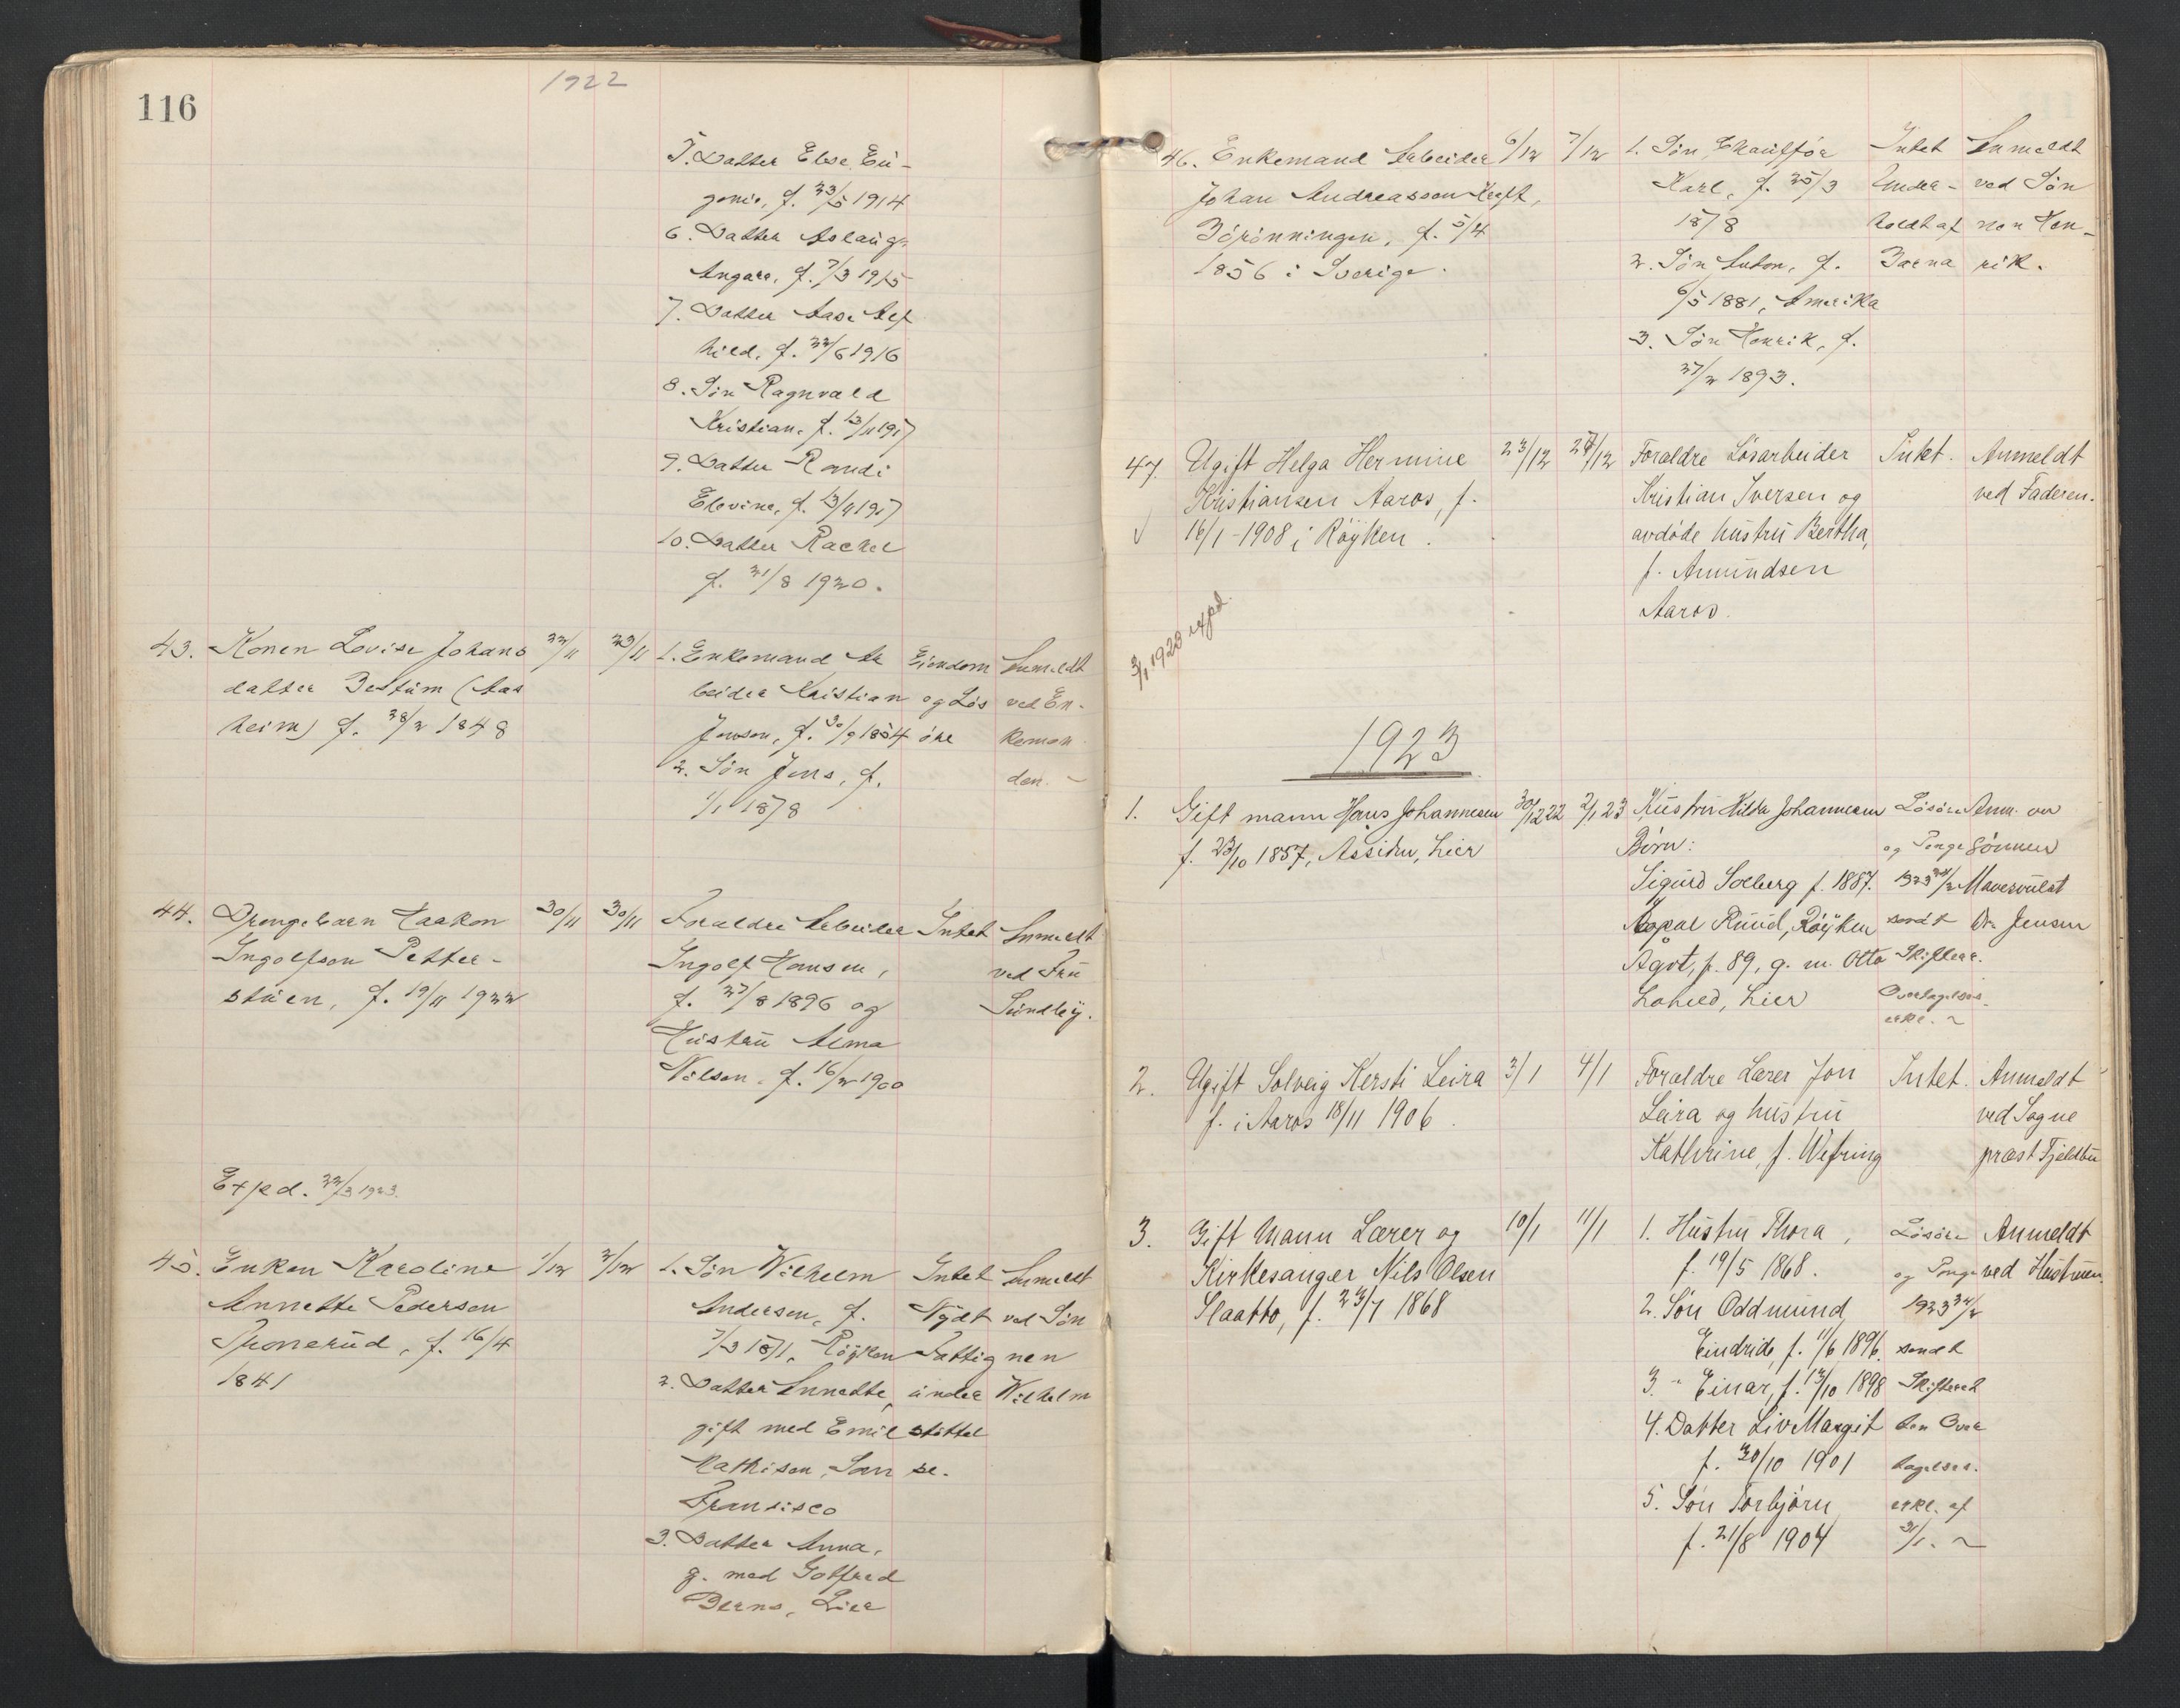 116
1922
5. Datter Else Eu-
genie, f. 23/5 1914
6. Datter Aslaug
Angara, f. 7/3 1915
7. Datter Aase Alf
hild, f. 22/6 1916
8. Søn Ragnvald
Kristian, f. 13/11 1917
9. Datter Randi
Elovine, f. 13/11 1917
10. Datter Rachel
f. 21/8 1920.
43. Konen Lovise Johans 22/11 23/11 1. Enkemand Ar Eiendom Anmeldt
datter Bestum (Aas beider Kristian og Løs ved En-
heim) f. 28/2 1848 Jonson, f. 30/9 1854 øre keman
2. Søn Jens, f. den. -
1/1 1878
44. Drengebarn Haakon 30/11 30/11 Forældre Arbeider Intet Anmeldt
Ingolfson Petter- Ingolf Hansen, ved Fru
stuen, f. 19/11 1922 f. 27/8 1896 og Sundby.
Hustru Alma
Nilsen, f. 16/2 1900
Exped. 22/3 1923.
45. Enken Karoline 1/12 2/12 1. Søn Wilhelm Intet Anmeldt
Annette Pedersen Andersen, f. Nydt ved Søn
f. 16/4 7/3 1871, Røyken Fattig nen
1841 2. Datter Annette, under Wilhelm
gift med Emil støttel
Mathisen, San se.
Fransisco
3. Datter Anna,
g. med Gotfred
Berns, Lier
46. Enkemand Arbeider 6/12 7/12 1. Søn, Chauffør Intet Anmeldt
Johan Andreassen Kraft, Karl, f. 25/3 Under- ved Søn
f. 5/4 1878 holdt af nen Hen-
1856 i Sverige. 2. Søn Anton, f. Barna rik.
6/5 1881, Amerika
3. Søn Henrik, f.
27/2 1893.
47. Ugift Helga Hermine 23/12 27/12 Forældre Løsarbeider Intet. Anmeldt
Kristiansen Aaros, f. Kristian Iversen og ved Faderen.
16/1-1908 i Røyken. avdøde hustru Bertha,
f. Amundsen
Aaros.
3/1 1923 expd.
1923
1. Gift mann Hans Johannesen 30/12 22 2/1 23 Hustru Hilda Johannesen Løsøre Anm. av
f. 23/10 1857, Assiden, Lier Børn: og Penge Sønnen
Sigurd Solberg f. 1887. 1923 24/2
Aspal Ruud, Røyken sendt Dr. Jensen
Ågot, f. 89, g. m. Otto Skifter.
Lier Overtagelses-
erkl. ~
2. Ugift Solveig Kersti Leira 3/1 4/1 Forældre Lærer Jon Intet. Anmeldt
f. i Aaros 18/11 1906. Leira og hustru ved Sogne
Kathrine, f. Wefring præst Fjeldbu
3. Gift Mann Lærer og 10/1 11/1 1. Hustru Thora, Løsøre Anmeldt
Kirkesanger Nils Olsen f. 19/5 1868. og Penge ved Hustruen.
Slaatto, f. 23/7 1868 2. Søn Oddmund 1923 24/2
Eindride, f. 11/6 1896. sendt
3. " Einar, f. 13/10 1898 Skifteret
4. Datter Liv Margit ten Over
f. 30/10 1901 tagelses.
5. Søn Torbjørn erkl. af
f. 21/8 1904 31/1. ~